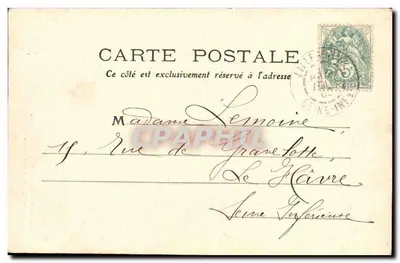 CARTE POSTALE
Ce côté est exclusivement réservé à l'adresse
Madame Lemoine
15, Rue de Gravelotte
Le Hâvre
Seine Inférieure
CPAPHIL
5